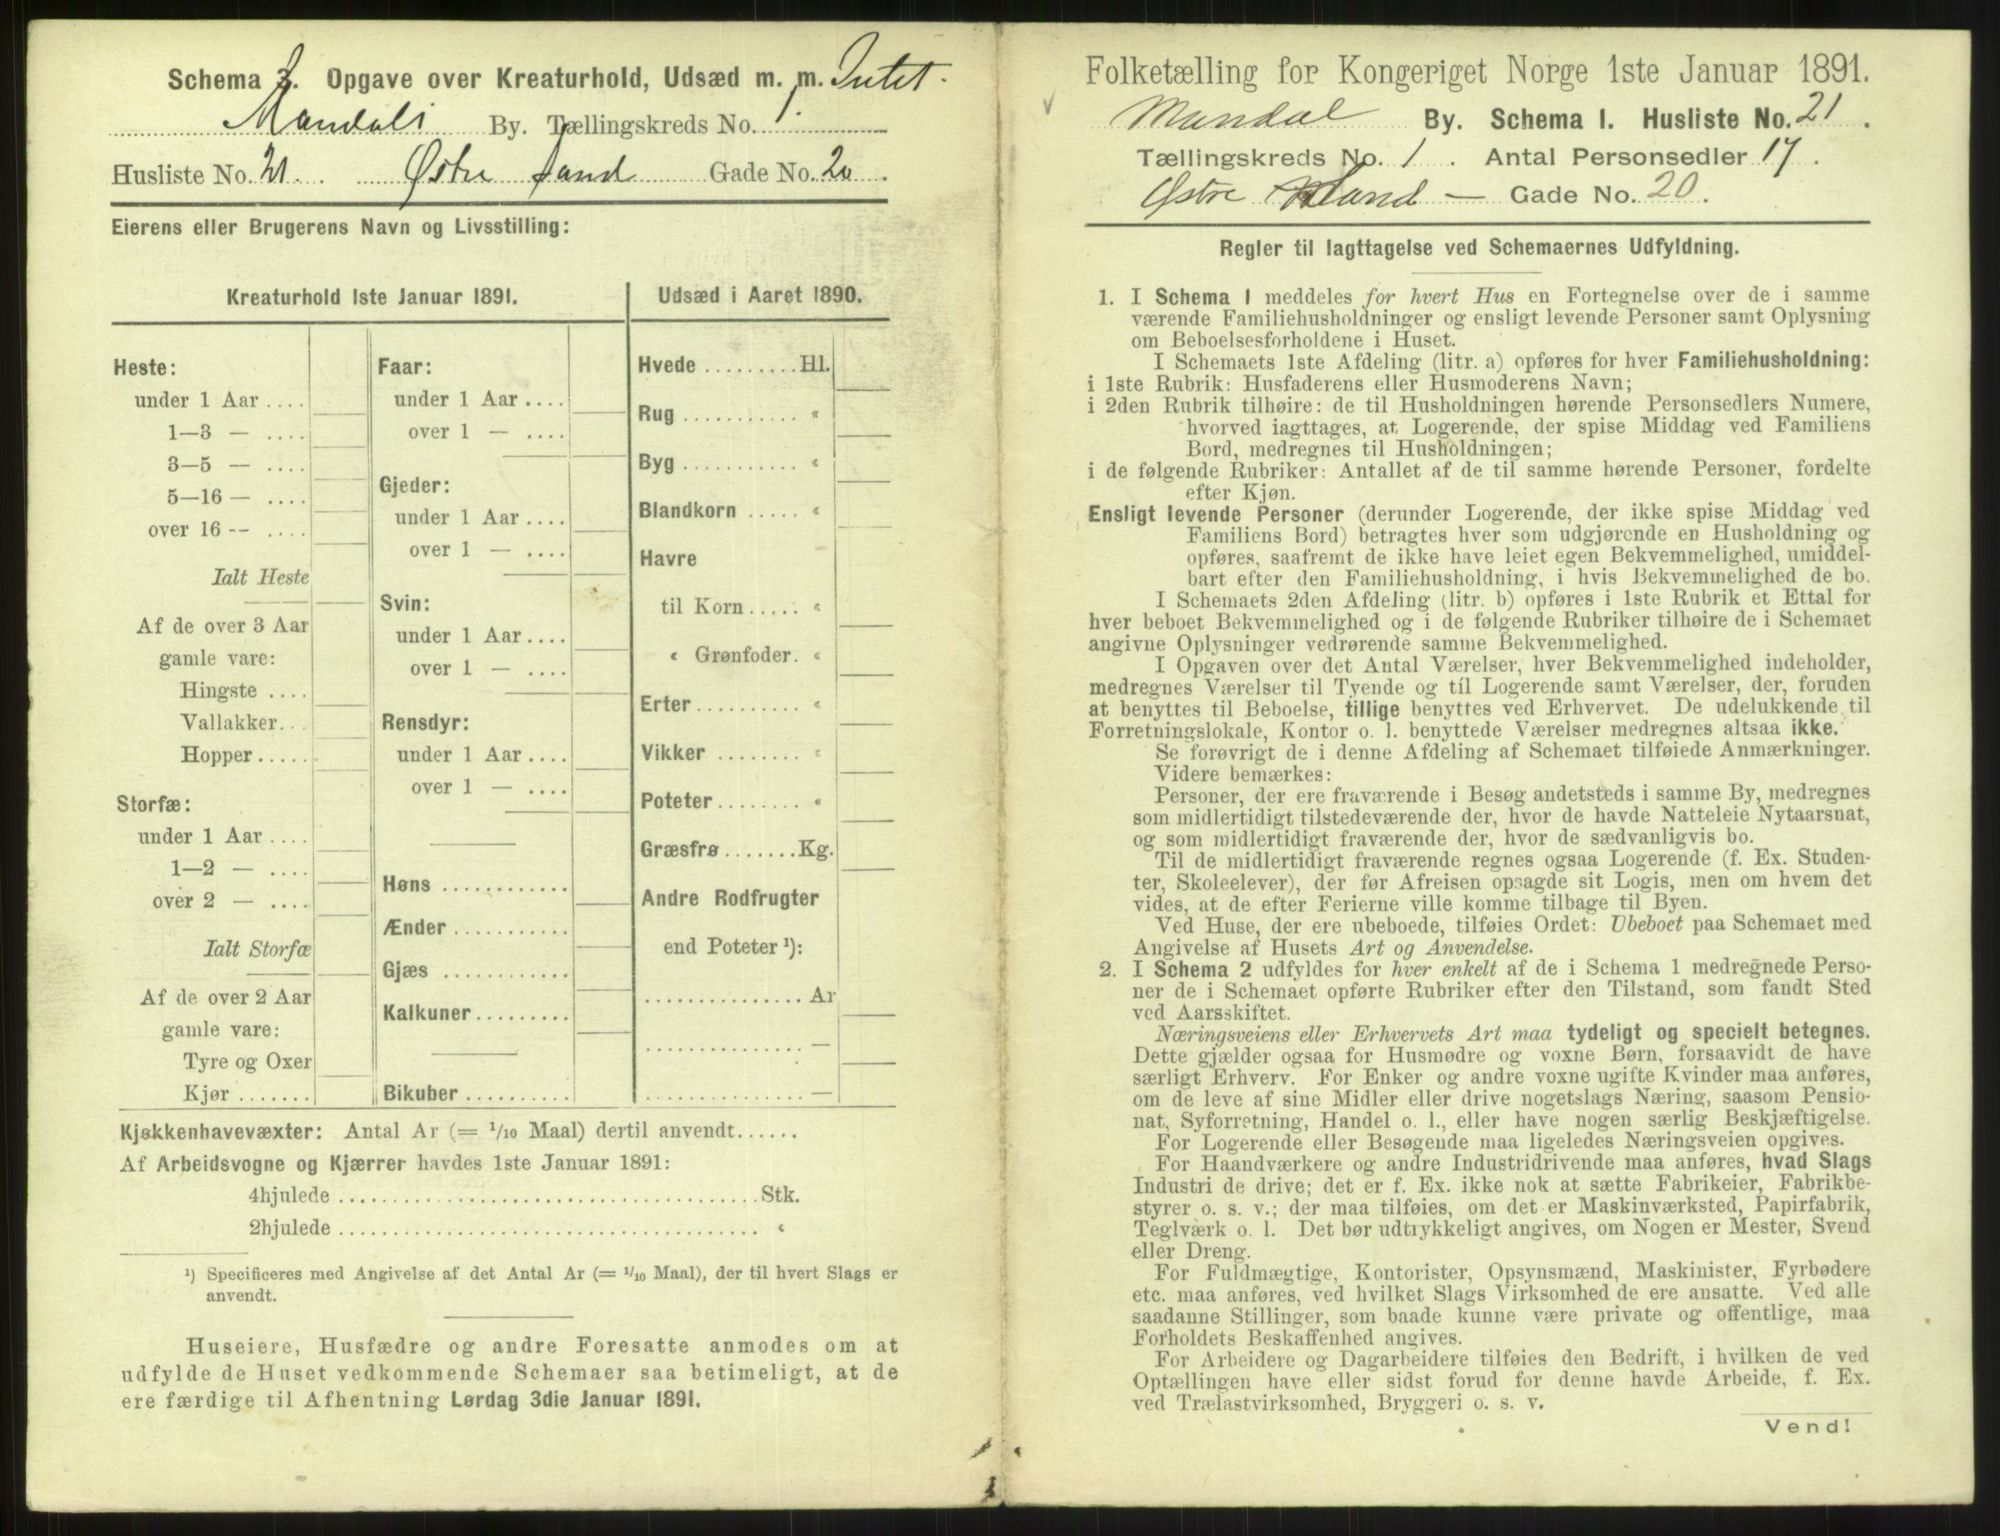 Schema 3. Opgave over Kreaturhold, Udsæd m. m. Intet.
Mandals By. Tællingskreds No. 1.
Husliste No. 21. Østre Sand Gade No. 20.
Eierens eller Brugerens Navn og Livsstilling:
Kreaturhold 1ste Januar 1891.
Heste:
under 1 Aar ....
1—3 — ....
3—5 — ....
5—16 — ....
over 16 -- ....
Ialt Heste
Af de over 3 Aar
gamle vare:
Hingste ....
Vallakker...
Hopper......
Storfæ:
under 1 Aar ....
1—2 — ....
over 2 — ....
Ialt Storfæ
Af de over 2 Aar
gamle vare:
Tyre og Oxer
Kjør .......
Faar:
under 1 Aar ....
over 1 — ....
Gjeder:
under 1 Aar ....
over 1 — ....
Svin:
under 1 Aar ....
over 1 — ....
Rensdyr:
under 1 Aar ....
over 1 — ....
Høns ............
Ænder ...........
Gjæs ............
Kalkuner.........
Bikuber ..........
Udsæd i Aaret 1890.
Hvede .........Hl.
Rug ........... «
Byg ........... «
Blandkorn ..... «
Havre
til Korn..... «
« Grønfoder. «
Erter.......... «
Vikker ........ «
Poteter........ «
Græsfrø.......Kg.
Andre Rodfrugter
end Poteter ¹):
...............Ar
............... —
............... —
Kjøkkenhavevæxter: Antal Ar (= 1/10 Maal) dertil anvendt......
Af Arbeidsvogne og Kjærrer havdes 1ste Januar 1891:
4hjulede ......................................Stk.
2hjulede ...................................... «
¹) Specificeres med Angivelse af det Antal Ar (= 1/10 Maal), der til hvert Slags er
anvendt.
Huseiere, Husfædre og andre Foresatte anmodes om at
udfylde de Huset vedkommende Schemaer saa betimeligt, at de
ere færdige til Afhentning Lørdag 3die Januar 1891.
Folketælling for Kongeriget Norge 1ste Januar 1891.
Mandal By. Schema I. Husliste No. 21.
Tællingskreds No. 1. Antal Personsedler 17.
Østre Sand — Gade No. 20.
Regler til Iagttagelse ved Schemaernes Udfyldning.
1. I Schema 1 meddeles for hvert Hus en Fortegnelse over de i samme
værende Familiehusholdninger og ensligt levende Personer samt Oplysning
om Beboelsesforholdene i Huset.
I Schemaets 1ste Afdeling (litr. a) opføres for hver Familiehusholdning:
i 1ste Rubrik: Husfaderens eller Husmoderens Navn;
i 2den Rubrik tilhøire: de til Husholdningen hørende Personsedlers Numere,
hvorved iagttages, at Logerende, der spise Middag ved Familiens
Bord, medregnes til Husholdningen;
i de følgende Rubriker: Antallet af de til samme hørende Personer, fordelte
efter Kjøn.
Ensligt levende Personer (derunder Logerende, der ikke spise Middag ved
Familiens Bord) betragtes hver som udgjørende en Husholdning og
opføres, saafremt de ikke have leiet egen Bekvemmelighed, umiddel-
bart efter den Familiehusholdning, i hvis Bekvemmelighed de bo.
I Schemaets 2den Afdeling (litr. b) opføres i 1ste Rubrik et Ettal for
hver beboet Bekvemmelighed og i de følgende Rubriker tilhøire de i Schemaet
angivne Oplysninger vedrørende samme Bekvemmelighed.
I Opgaven over det Antal Værelser, hver Bekvemmelighed indeholder,
medregnes Værelser til Tyende og til Logerende samt Værelser, der, foruden
at benyttes til Beboelse, tillige benyttes ved Erhvervet. De udelukkende til
Forretningslokale, Kontor o. l. benyttede Værelser medregnes altsaa ikke.
Se forøvrigt de i denne Afdeling af Schemaet tilføiede Anmærkninger.
Videre bemærkes:
Personer, der ere fraværende i Besøg andetsteds i samme By, medregnes
som midlertidigt tilstedeværende der, hvor de havde Natteleie Nytaarsnat,
og som midlertidigt fraværende der, hvor de sædvanligvis bo.
Til de midlertidigt fraværende regnes ogsaa Logerende (f. Ex. Studen-
ter, Skoleelever), der før Afreisen opsagde sit Logis, men om hvem det
vides, at de efter Ferierne ville komme tilbage til Byen.
Ved Huse, der ere ubeboede, tilføies Ordet: Ubeboet paa Schemaet med
Angivelse af Husets Art og Anvendelse.
2. I Schema 2 udfyldes for hver enkelt af de i Schema 1 medregnede Perso-
ner de i Schemaet opførte Rubriker efter den Tilstand, som fandt Sted
ved Aarsskiftet.
Næringsveiens eller Erhvervets Art maa tydeligt og specielt betegnes.
Dette gjælder ogsaa for Husmødre og voxne Børn, forsaavidt de have
særligt Erhverv. For Enker og andre voxne ugifte Kvinder maa anføres,
om de leve af sine Midler eller drive nogetslags Næring, saasom Pensio-
nat, Syforretning, Handel o. l., eller have nogen særlig Beskjæftigelse.
For Logerende eller Besøgende maa ligeledes Næringsveien opgives.
For Haandværkere og andre Industridrivende maa anføres, hvad Slags
Industri de drive; det er f. Ex. ikke nok at sætte Fabrikeier, Fabrikbe-
styrer o. s. v.; der maa tilføies, om det er Maskinværksted, Papirfabrik,
Teglværk o. l. Det bør udtrykkeligt angives, om Nogen er Mester, Svend
eller Dreng.
For Fuldmægtige, Kontorister, Opsynsmænd, Maskinister, Fyrbødere
etc. maa anføres, ved hvilket Slags Virksomhed de ere ansatte. Ved alle
saadanne Stillinger, som baade kunne være private og offentlige, maa
Forholdets Beskaffenhed angives.
For Arbeidere og Dagarbeidere tilføies den Bedrift, i hvilken de ved
Optællingen have eller sidst forud for denne havde Arbeide, f. Ex.
ved Trælastvirksomhed, Bryggeri o. s. v.
Vend!